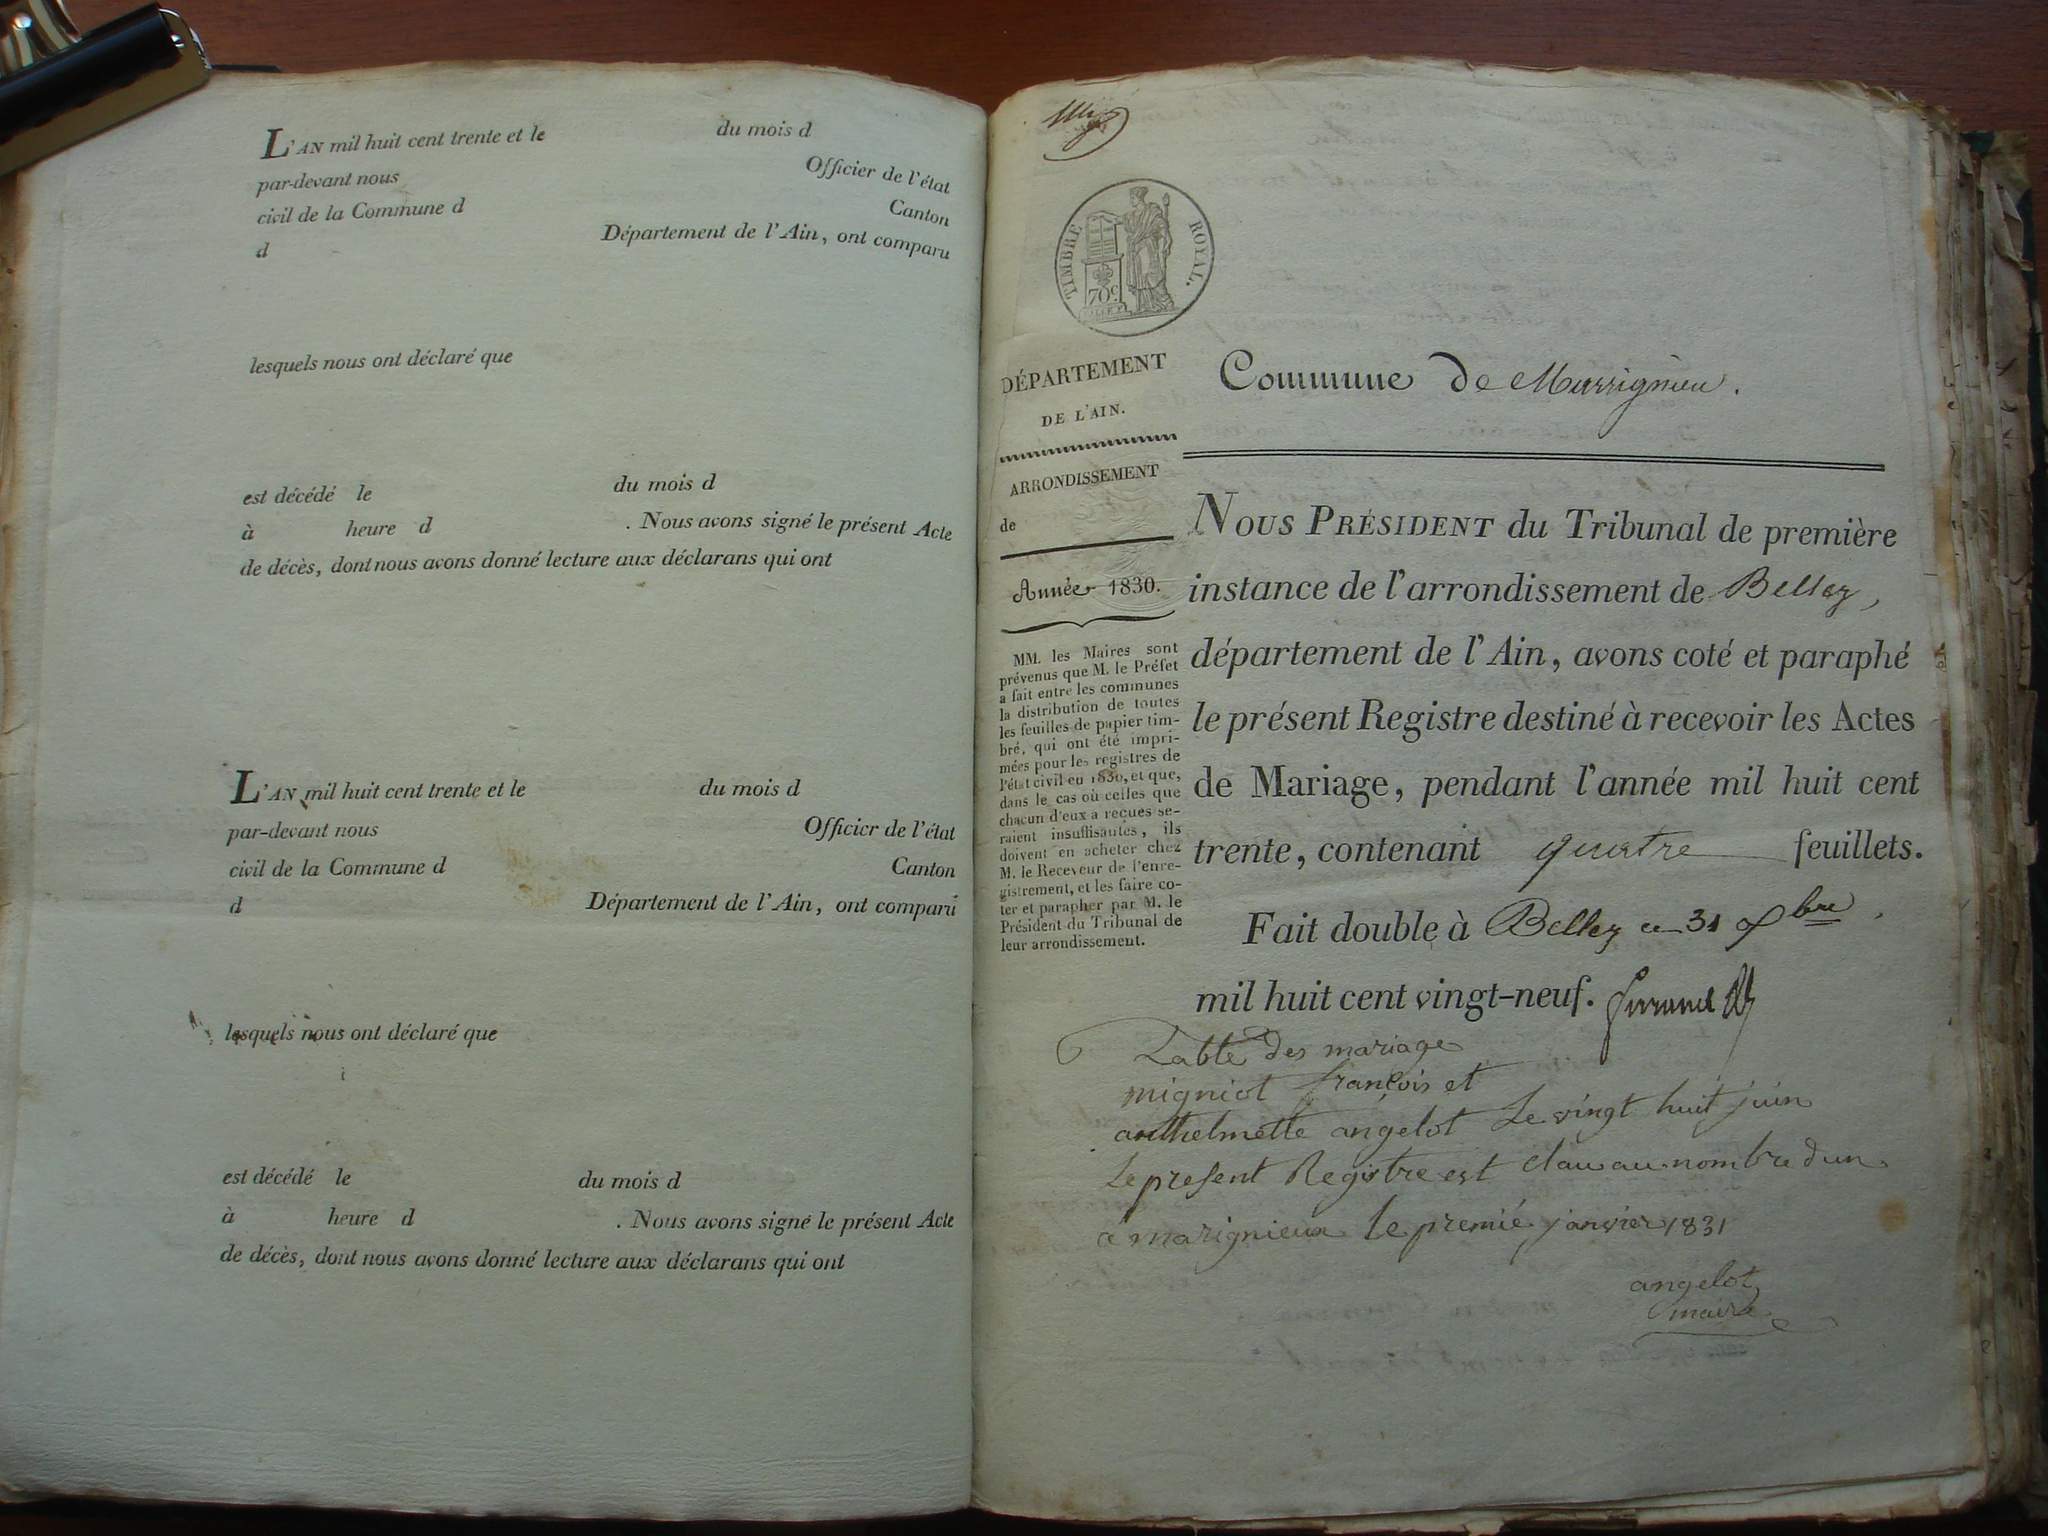 L'AN mil huit cent trente et le du mois d
par-devant nous Officier de l'état
civil de la Commune d Canton
d Département de l'Ain, ont comparu
lesquels nous ont déclaré que
est décédé le du mois d
à heure d . Nous avons signé le présent Acte
de décès, dont nous avons donné lecture aux déclarans qui ont
L'AN mil huit cent trente et le du mois d
par-devant nous Officier de l'état
civil de la Commune d Canton
d Département de l'Ain, ont comparu
lesquels nous ont déclaré que
est décédé le du mois d
à heure d . Nous avons signé le présent Acte
de décès, dont nous avons donné lecture aux déclarans qui ont
TIMBRE ROYAL.
70c.
DÉPARTEMENT
DE L'AIN.
ARRONDISSEMENT
de
Année 1830.
MM. les Maires sont
prévenus que M. le Préfet
a fait entre les communes
la distribution de toutes
les feuilles de papier tim-
bré, qui ont été impri-
mées pour les registres de
l'état civil en 1830, et que,
dans le cas où celles que
chacun d'eux a reçues se-
raient insuffisantes, ils
doivent en acheter chez
M. le Receveur de l'enre-
gistrement, et les faire co-
ter et parapher par M. le
Président du Tribunal de
leur arrondissement.
Commune de Marrignieu.
NOUS PRÉSIDENT du Tribunal de première
instance de l'arrondissement de Belley,
département de l'Ain, avons coté et paraphé
le présent Registre destiné à recevoir les Actes
de Mariage, pendant l'année mil huit cent
trente, contenant quatre feuillets.
Fait double à Belley ce 31 Xbre
mil huit cent vingt-neuf.
Table des mariage
migniot françois et
anthelmette angelot Le vingt huit juin
Le present Registre est clau au nombre dun
a marignieux le premié janvier 1831
angelot
maire